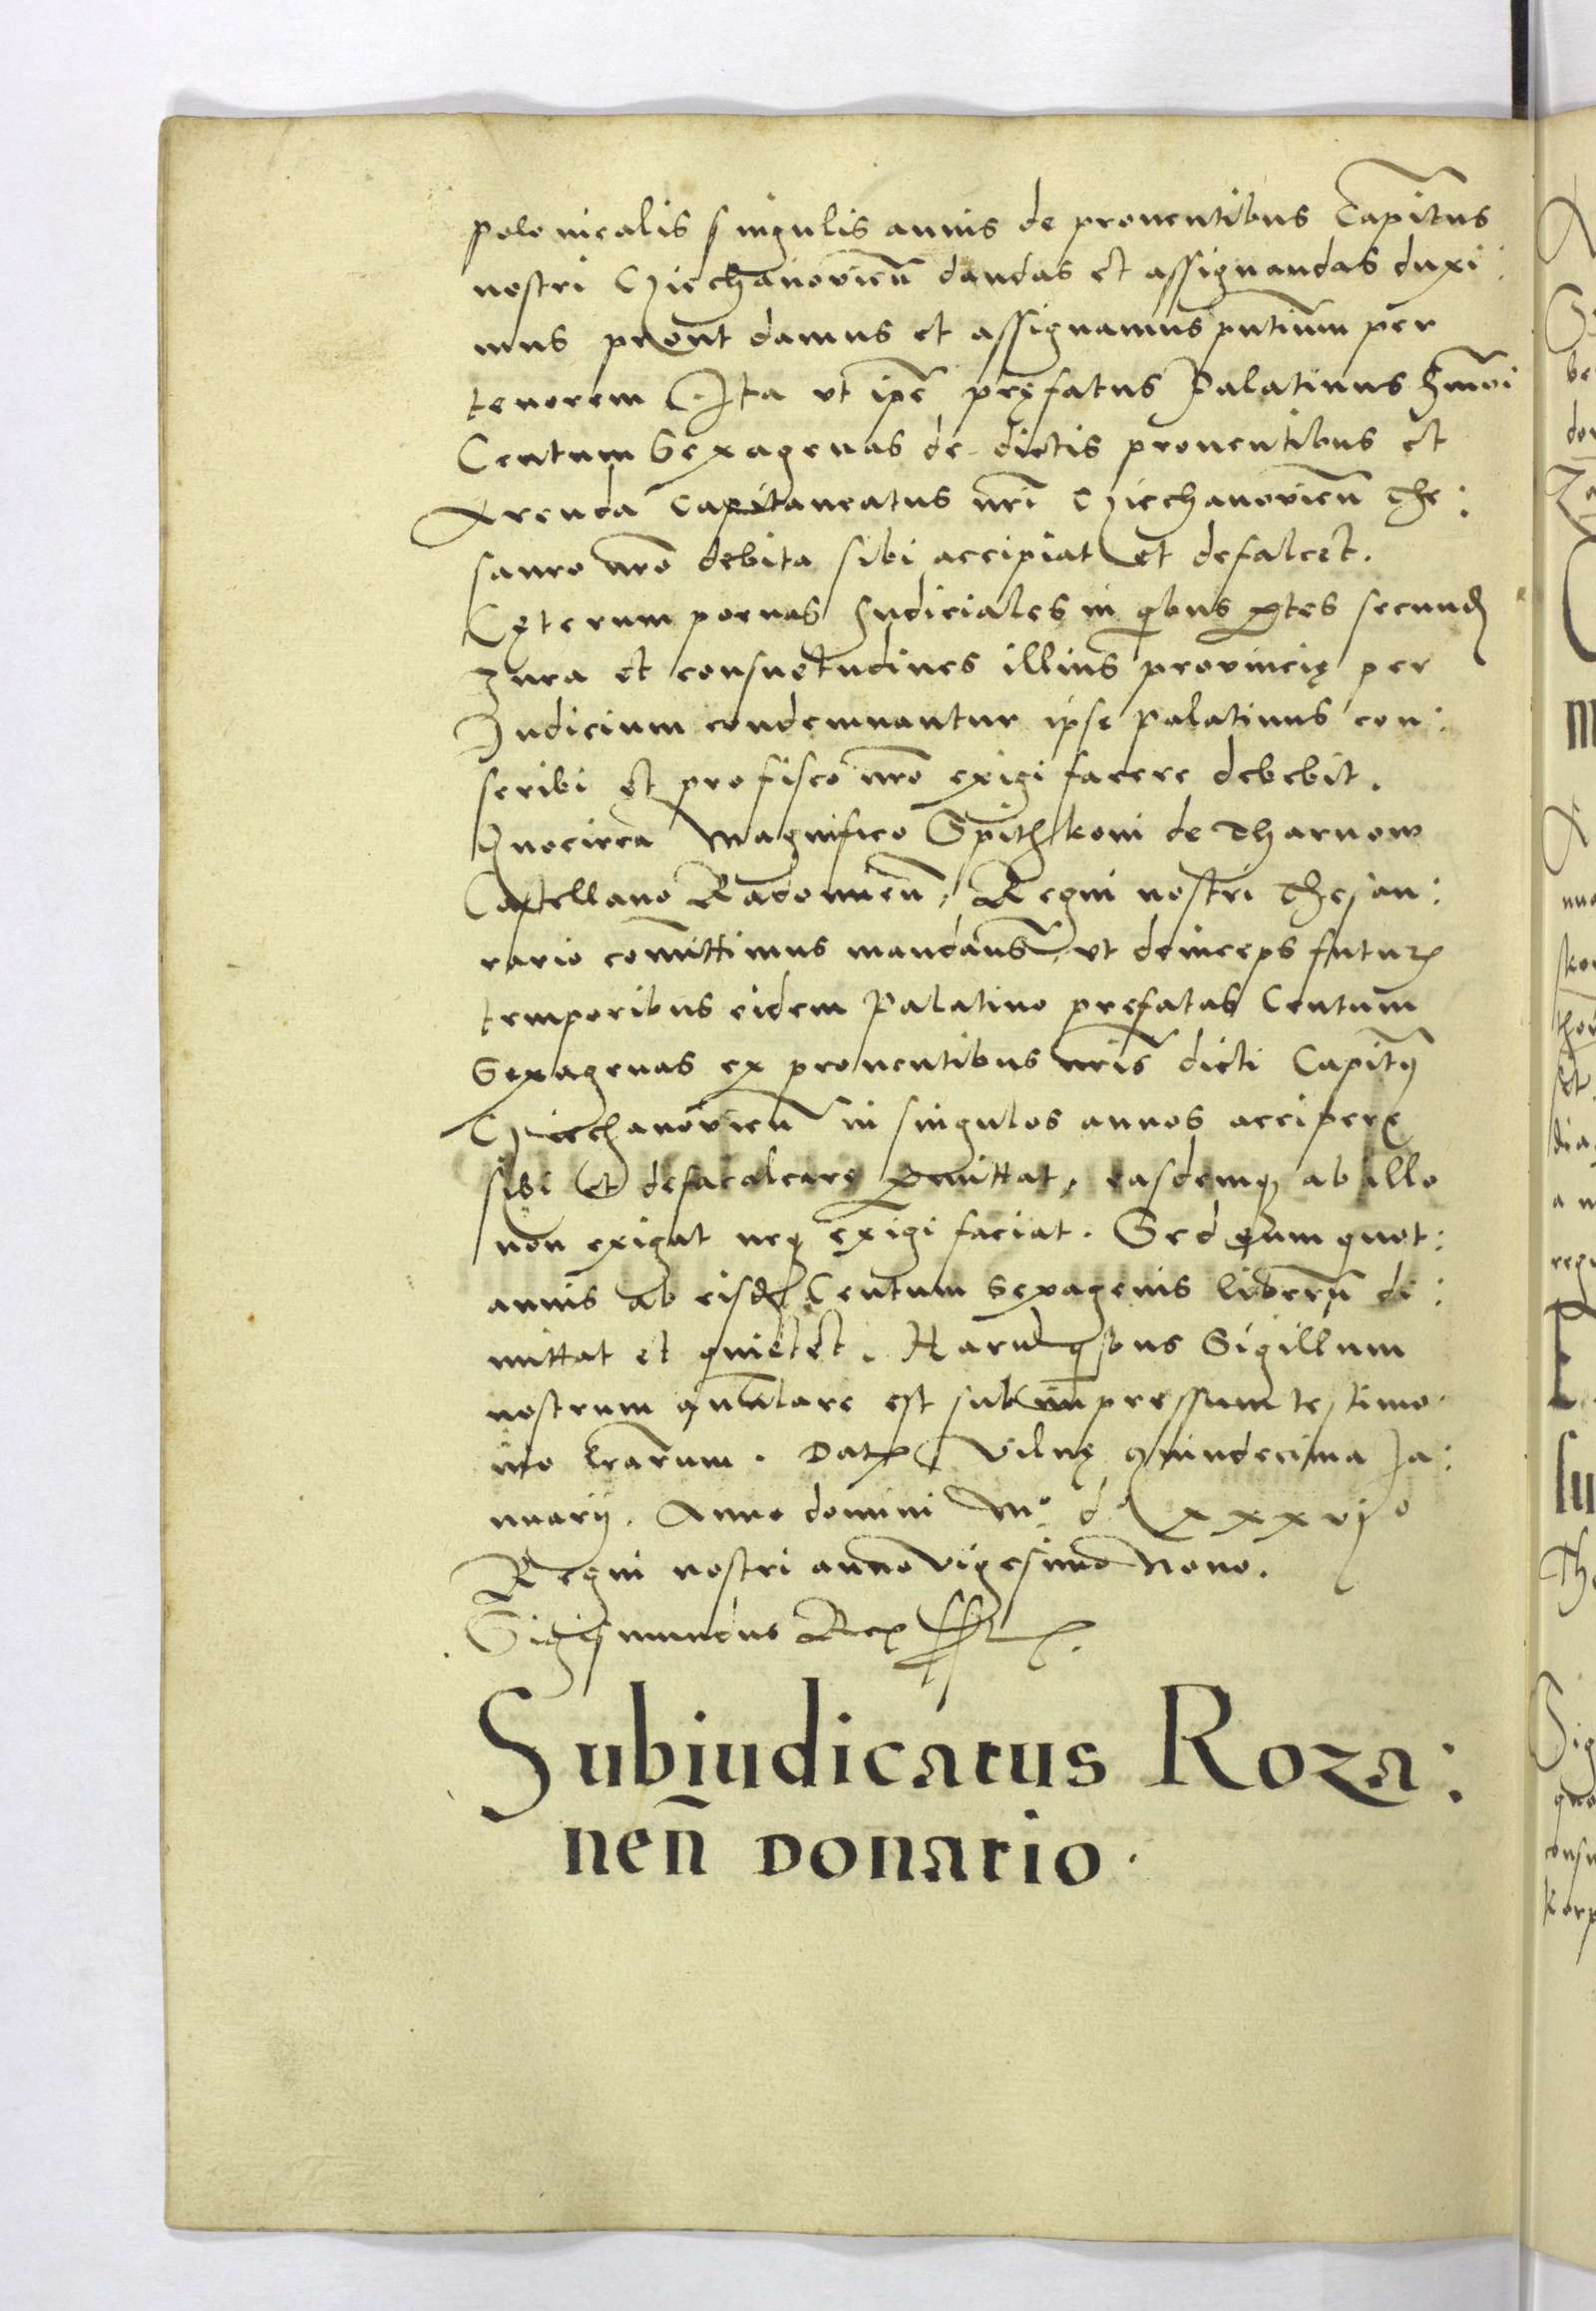 polonicalis singulis annis de proventibus Capitatus
nostri Cziechanovien̄ dandas et assignandas duxi:
mus prout damus et assignamus pntium per
tenorem Ita ut ip̄e pręfatus Palatinus hmōi
Centum Sexagenas de dictis proventibus et
Arenda Capitaneatus nr̄i Cziechanovien̄ The:
sauro nrō debita sibi accipiat et defalcet.
Cęterum poenas Judiciales in qbus ptes secund
Jura et consuetudines illius provincię per
Judicium condemnantur ipse Palatinus con:
scribi et pro fisco nrō exigi facere debebit.
Quocirca Magnifico Spithkoni de Tharnow
Castellano Radomien̄, Regni nostri Thesau:
rario com̄ittimus mandan̄s ut deinceps futur
temporibus eidem Palatino prefatas Centum
Sexagenas ex proventibus nr̄is dicti Capitq
Cziechanovien̄ in singulos annos accipere
sibi et defacalcare pmittat, easdemq ab illo
non exigat neq exigi faciat. Sed eum quot:
annis ab eisdē Centum Sexagenis liberū di:
mittat et quietet. Harū qbus Sigillum
nostrum annulare est subimpressum testimo:
nio lrārum. Dat Vilnę quindecima Ja:
nuarij. Anno domini Mo. d. xxxvjo
Regni nostri anno vigesimo Nono.
Sigismundus Rex sst.
Subiudicatus Roza:
nen̄ Donatio.